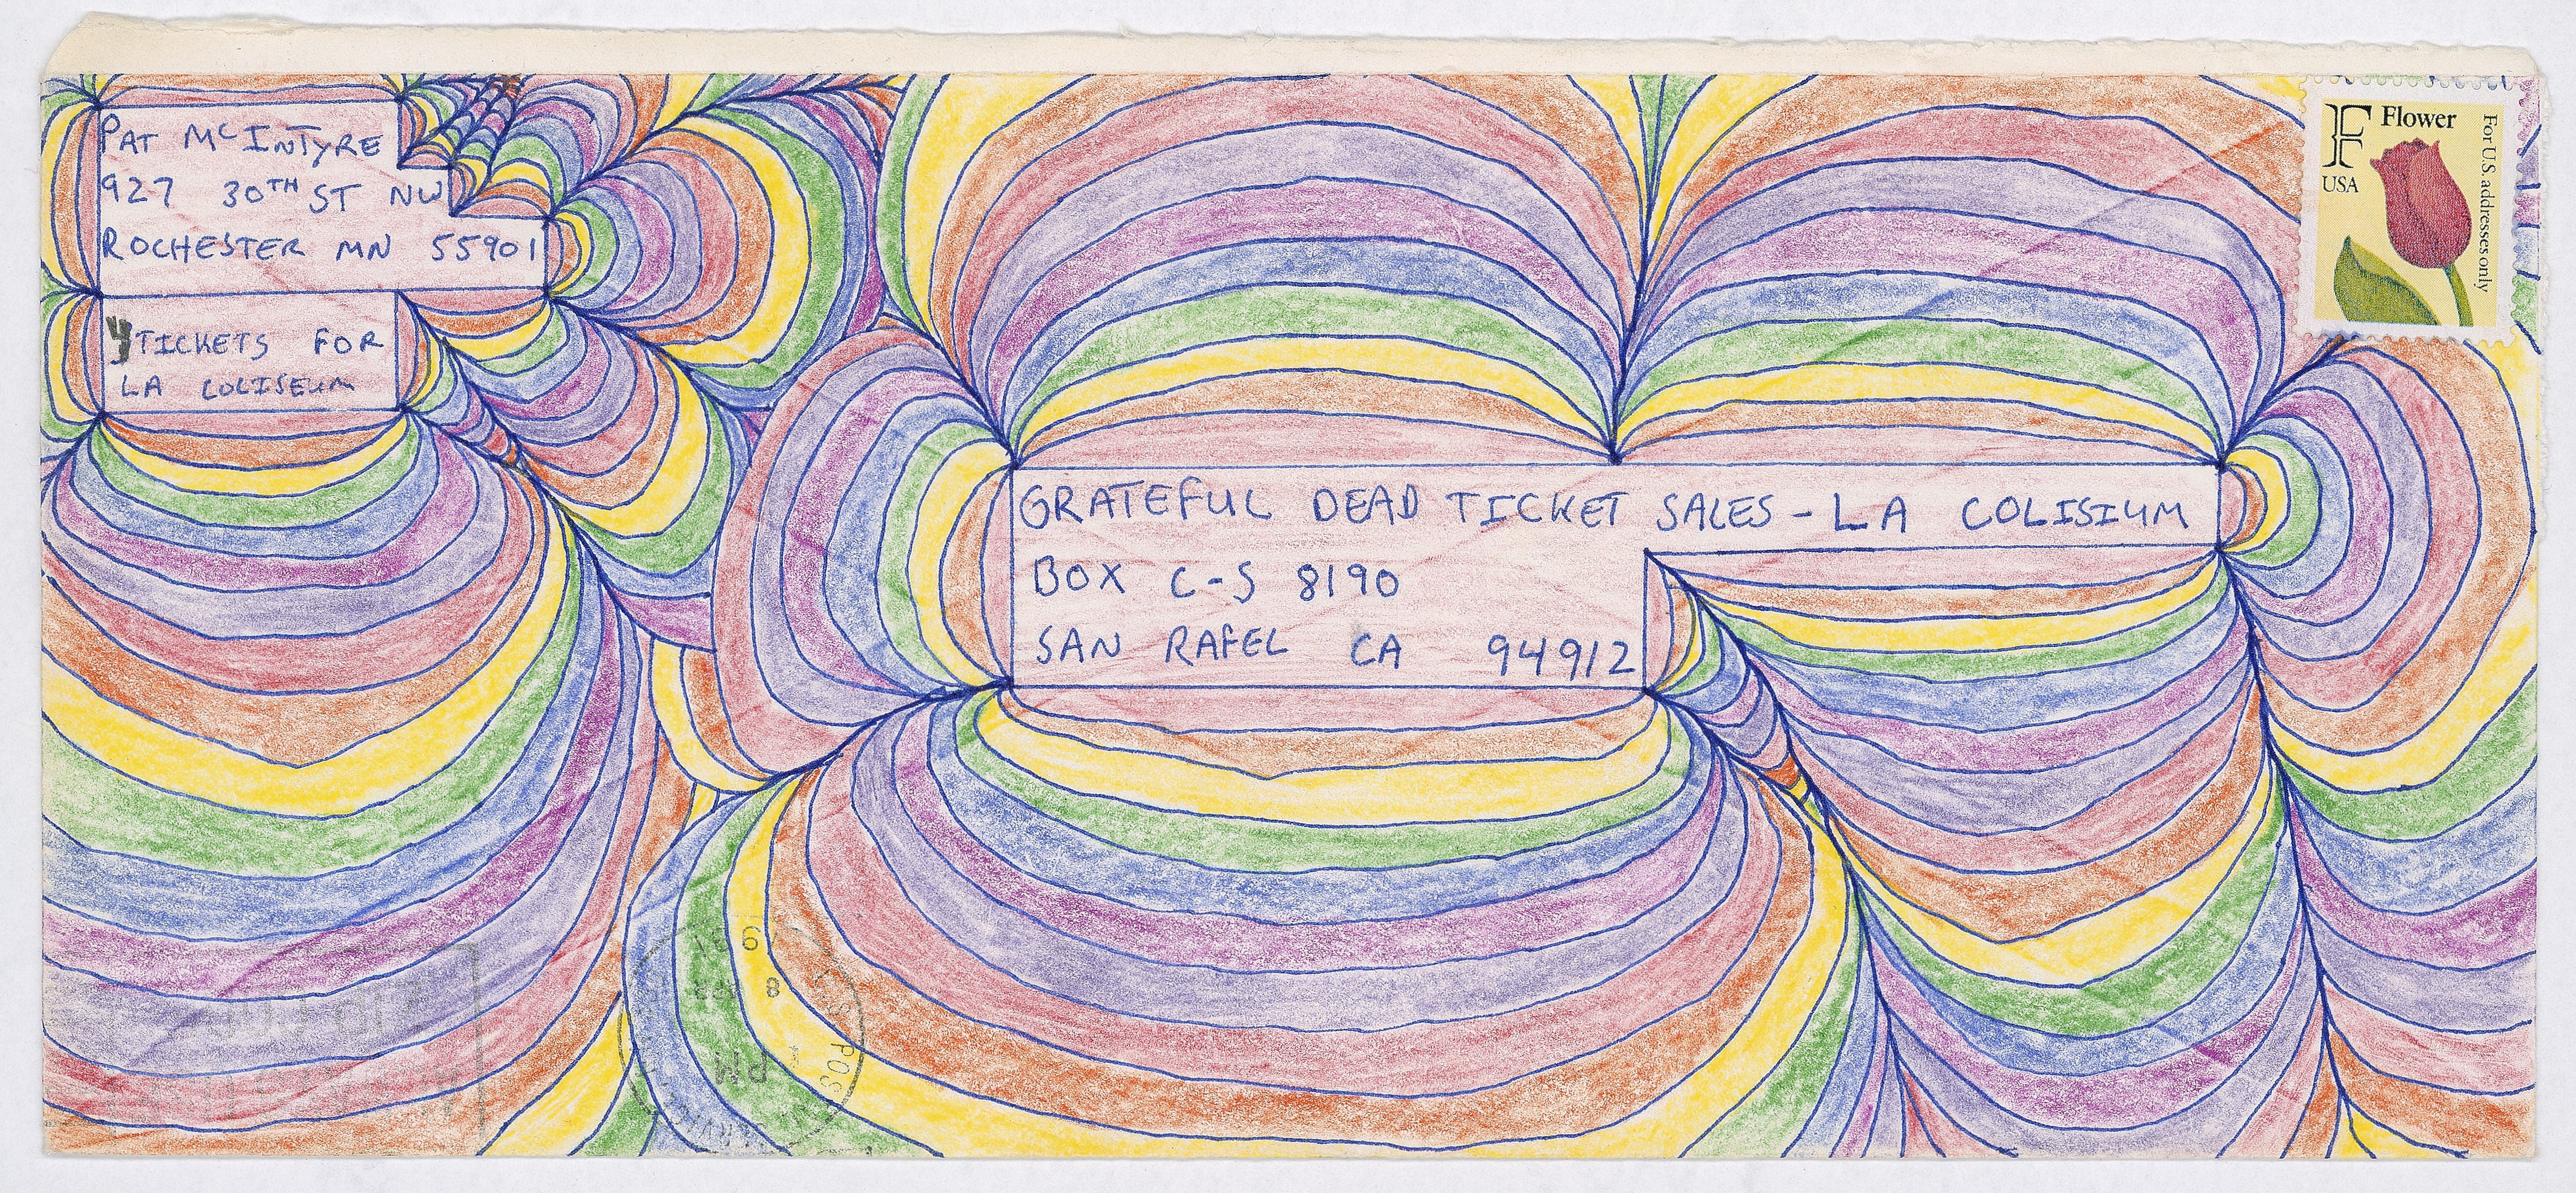 PAT McINTYRE
927 30TH ST NW
ROCHESTER MN 55901
4 TICKETS FOR
LA COLISEUM
F Flower
USA
For U.S. addresses only
GRATEFUL DEAD TICKET SALES - LA COLISIUM
BOX C-S 8190
SAN RAFEL CA 94912
PM